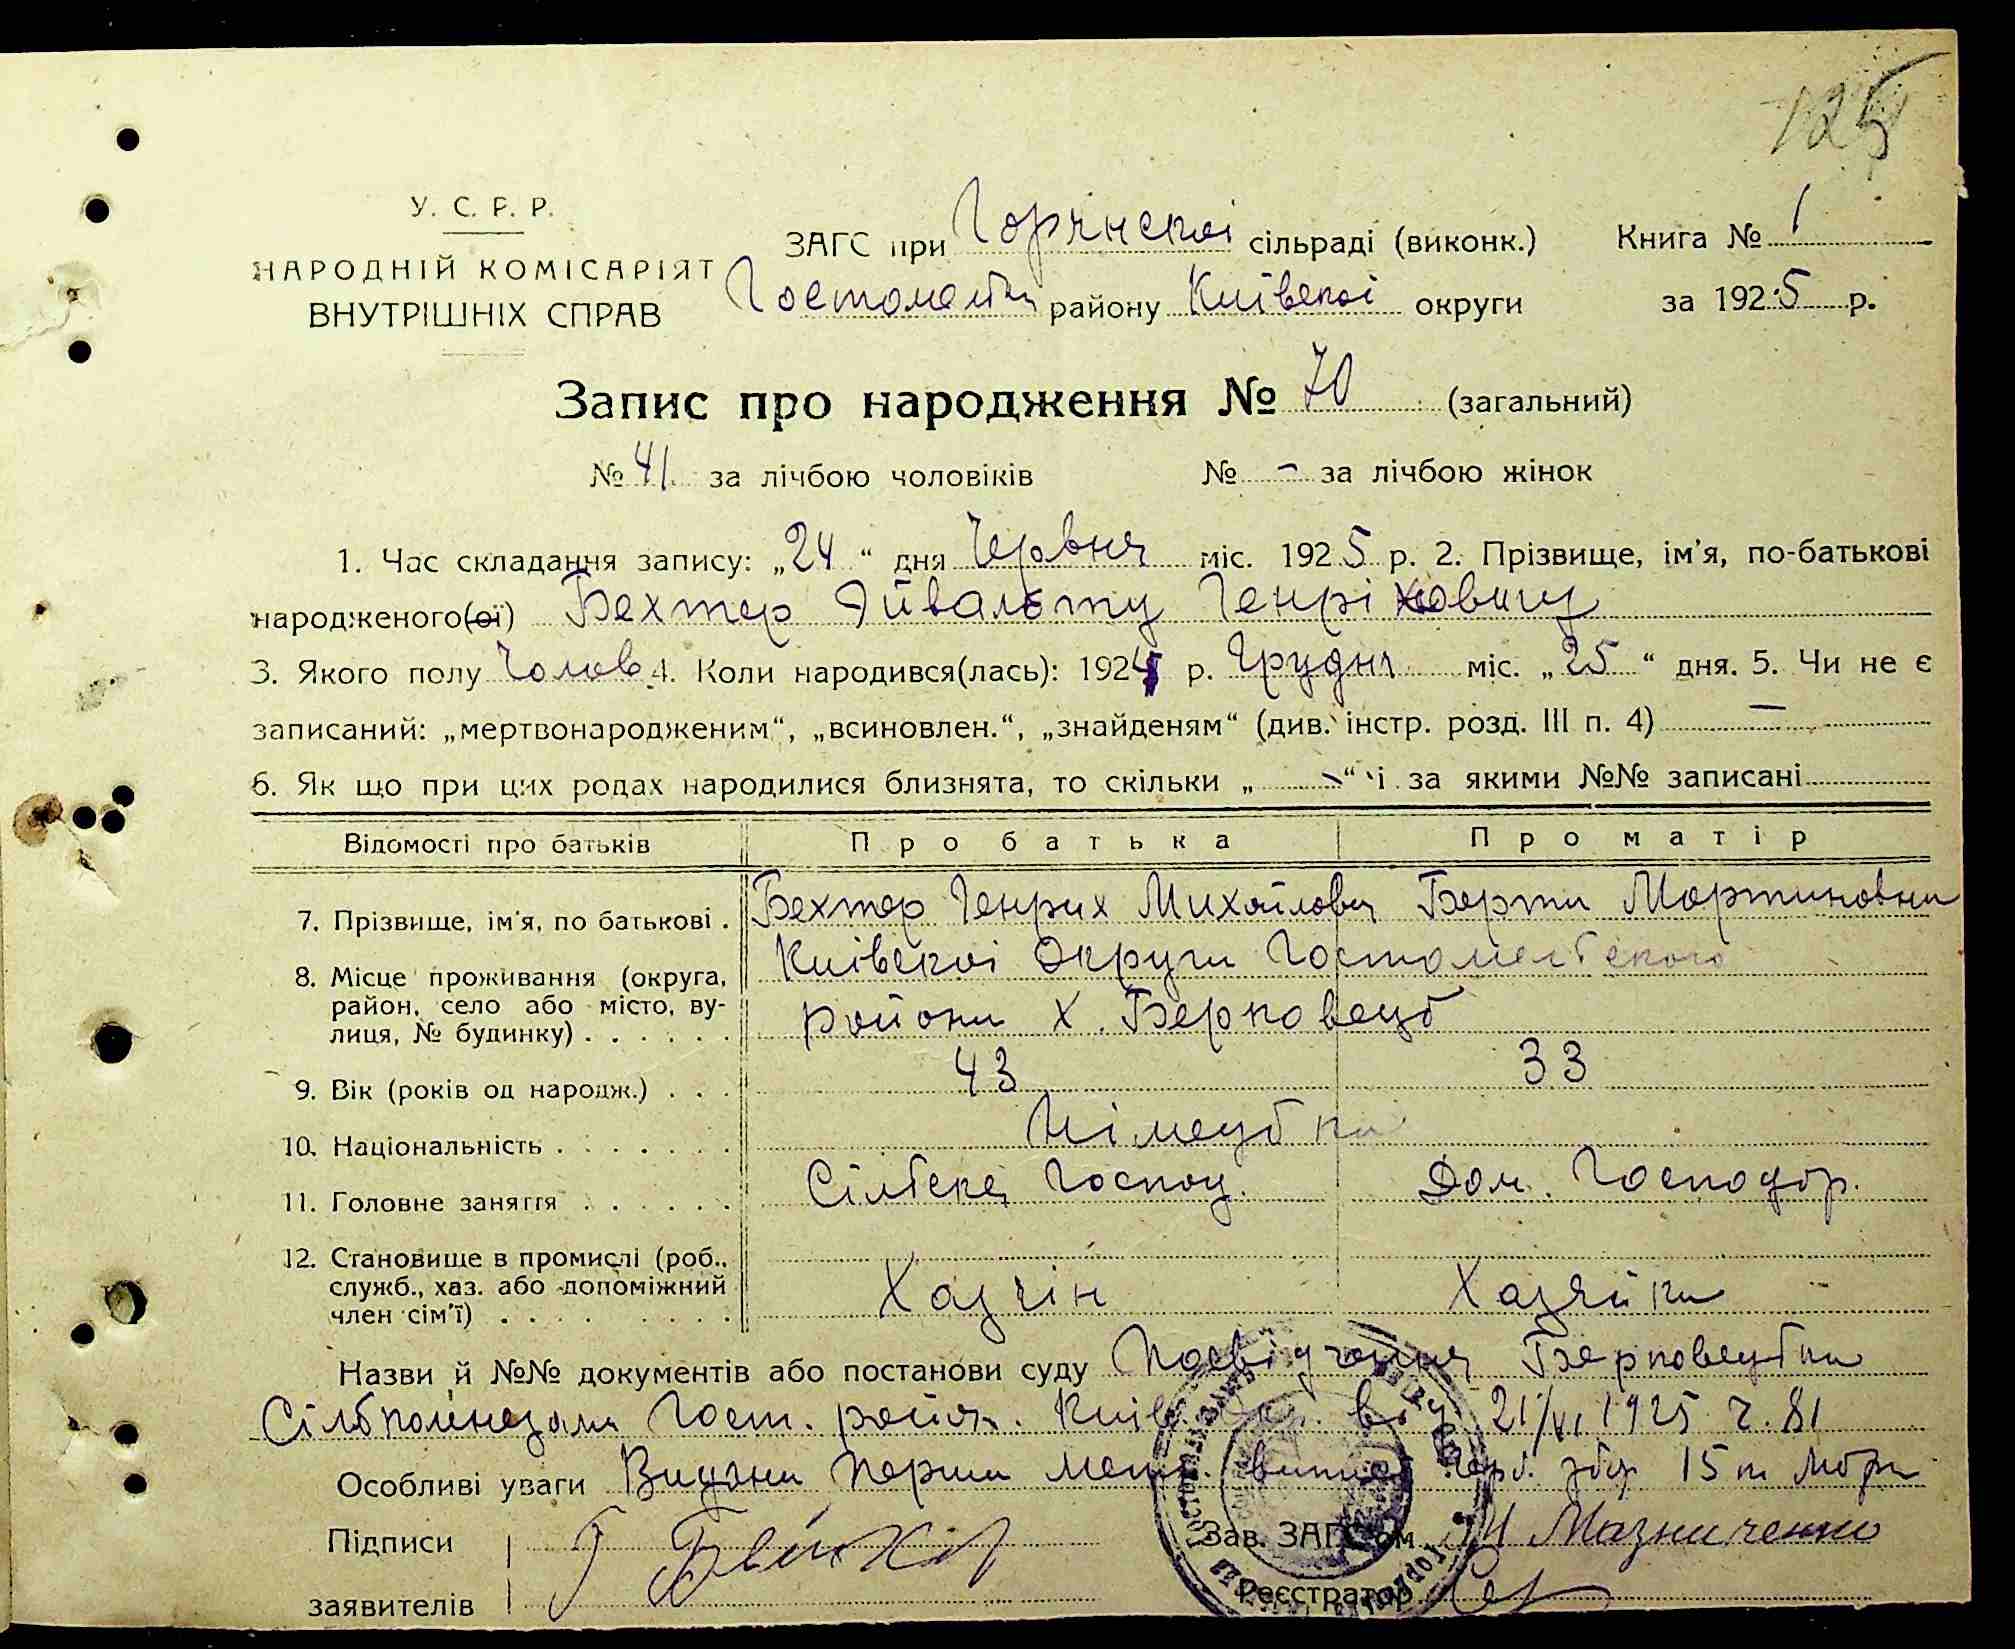 125
У. С. Р. Р.
НАРОДНІЙ КОМІСАРІЯТ
ВНУТРІШНІХ СПРАВ
ЗАГС при Горянскоі сільраді (виконк.) Книга № 1
району Київскоі округи за 1925 р.
Запис про народження № 70 (загальний)
№ 41 за лічбою чоловіків № – за лічбою жінок
1. Час складання запису: „24“ дня Червня міс. 1925 р. 2. Прізвище, ім'я, по-батькові
народженого(ої) Бехтер Эйвальту Генріховичу
3. Якого полу Чолов 4. Коли народився(лась): 1924 р. Грудня міс. „25“ дня. 5. Чи не є
записаний: „мертвонародженим“, „всиновлен.“, „знайденям“ (див. інстр. розд. III п. 4) —
6. Як що при цих родах народилися близнята, то скільки „ – “ і за якими №№ записані
Відомості про батьків Про батька Про матір
7. Прізвище, ім'я, по батькові . Бехтер Генрих Михайлович Берта Мартиновна
8. Місце проживання (округа, район, село або місто, вулиця, № будинку) . . . . . . Київскоі Округи Гостомельского
района х. Берковець
9. Вік (років од народж.) . . . 43 33
10. Національність . . . . . . . Німецька
11. Головне заняття . . . . . . Сільске Господ. Дом. Господар.
12. Становище в промислі (роб., служб., хаз. або допоміжний член сім'ї) . . . . . . . . Хазяін Хазяйка
Назви й №№ документів або постанови суду Посвідчення Берковецька
Гост. район. Київ. Окр. від 21/VI 1925 ч. 81
Особливі уваги Видана перша 15 к
Підписи Зав. ЗАГС'ом Мазниченко
заявителів Реєстратор